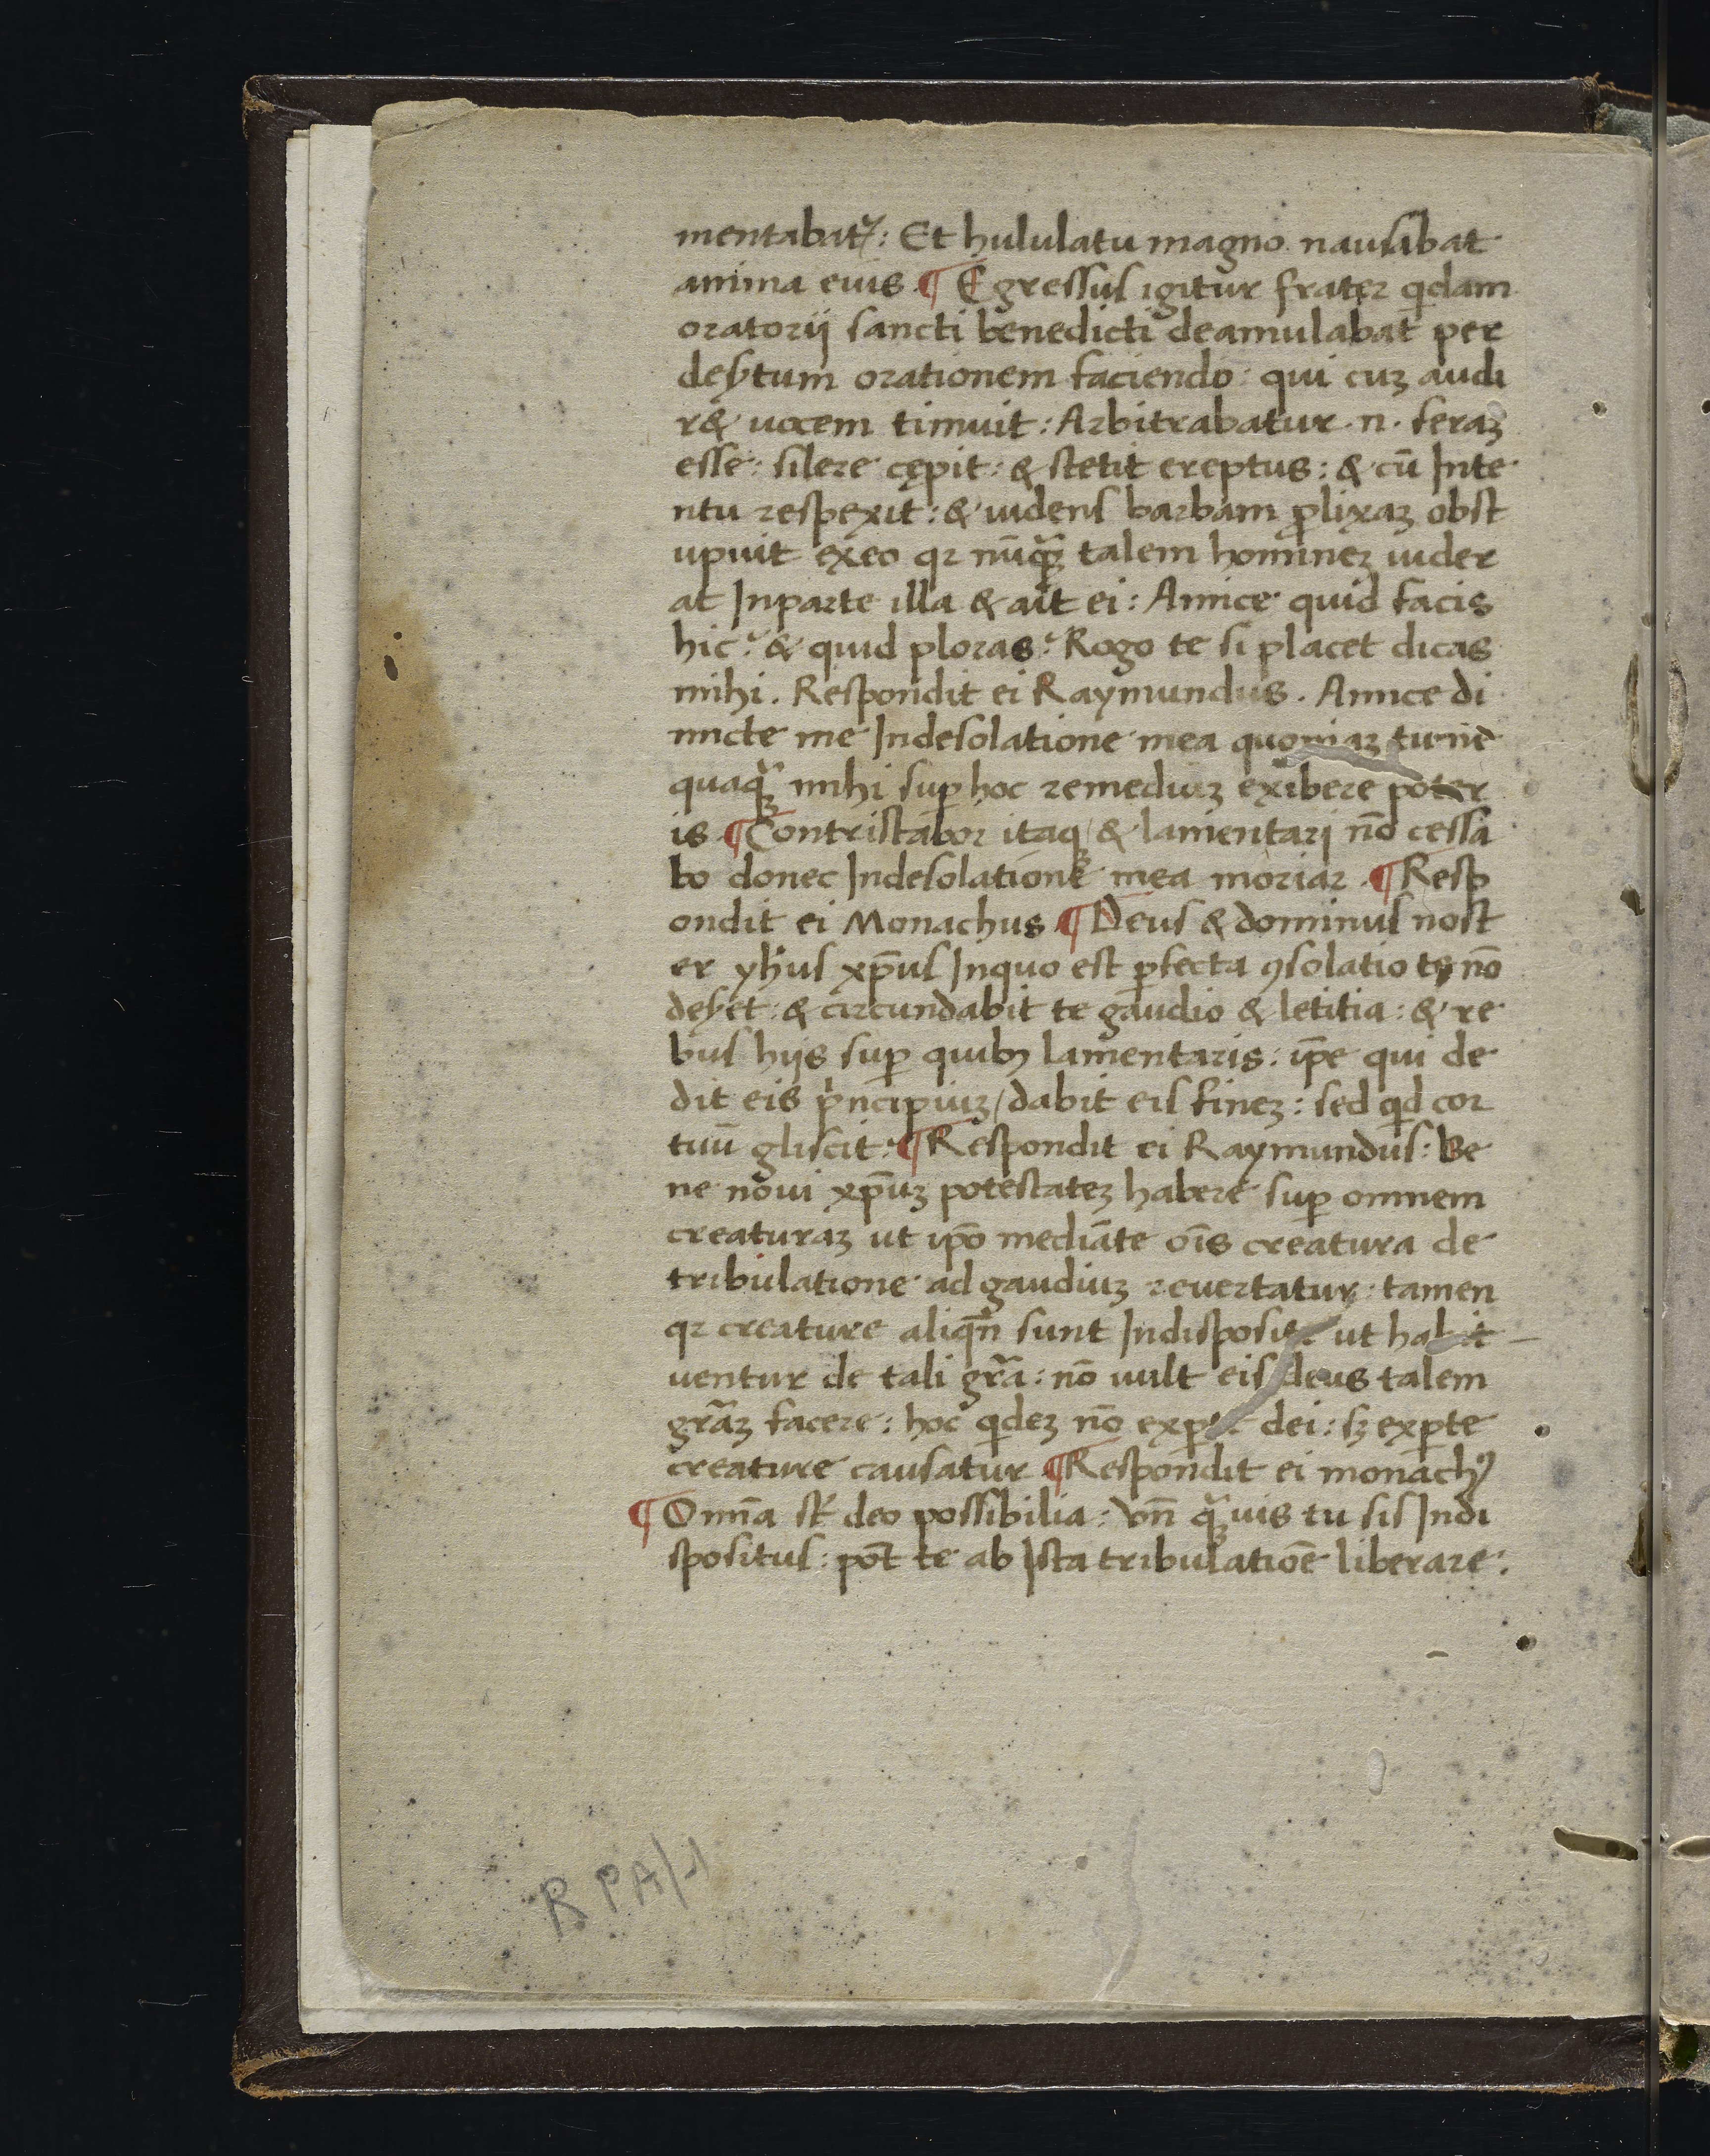 mentabatꝰ: Et hululatu magno nausibat
anima eius ¶ Egressus igitur frater qdam
oratorij sancti benedicti deamulabat per
deſytum orationem faciendo: qui cuꝫ audi
r& uocem timuit: Arbitrabatur .n. feraꝫ
esse: silere cępit: & stetit ereptus: & cū Inte
ntu respexit: & uidens barbam ꝓlixaꝫ obst
upuit exeo qꝛ nūqꝫ talem homineꝫ uider
at Inparte illa & ait ei: Amice quid facis
hic? & quid ploras? Rogo te si placet dicas
mihi. Respondit ei Raymundus. Amice di
micte me Indesolatione mea quoniaꝫ tu ne
quaqꝫ mihi suꝑ hoc remediuꝫ exibere poter
is ¶ Contristabor itaqꝫ / & lamentari nō cessa
bo donec Indesolatione mea moriar. ¶ Resp
ondit ei Monachus ¶ Deus & dominus nost
er yhus xp̄us Inquo est ꝑfecta ꝯsolatio te nō
deſyet: & circundabit te gaudio & letitia: & re
bus hijs suꝑ quibꝫ lamentaris: ip̄e qui de
dit eis pͥncipiuꝫ / dabit eis fineꝫ: sed qd cor
tuū gliscit? ¶ Respondit ei Raymundus: Be
ne noui xp̄uꝫ potestateꝫ habere suꝑ omnem
creaturaꝫ ut ip̄o mediāte oīs creatura de
tribulatione ad gaudiuꝫ reuertatur: tamen
qꝛ creature aliqn̄ sunt Indisposite ut habit
uentur de tali gr̄a: nō uult eis deus talem
gr̄aꝫ facere: hoc qdeꝫ nō exꝑte dei: sꝫ exꝑte
creature causatur ¶ Respondit ei monachꝰ
¶ Omn̄a st̄ deo possibilia: Vn̄ qꝫuis tu sis Indi
spositus: pōt te ab Ista tribulatiōe liberare:
R PA/1